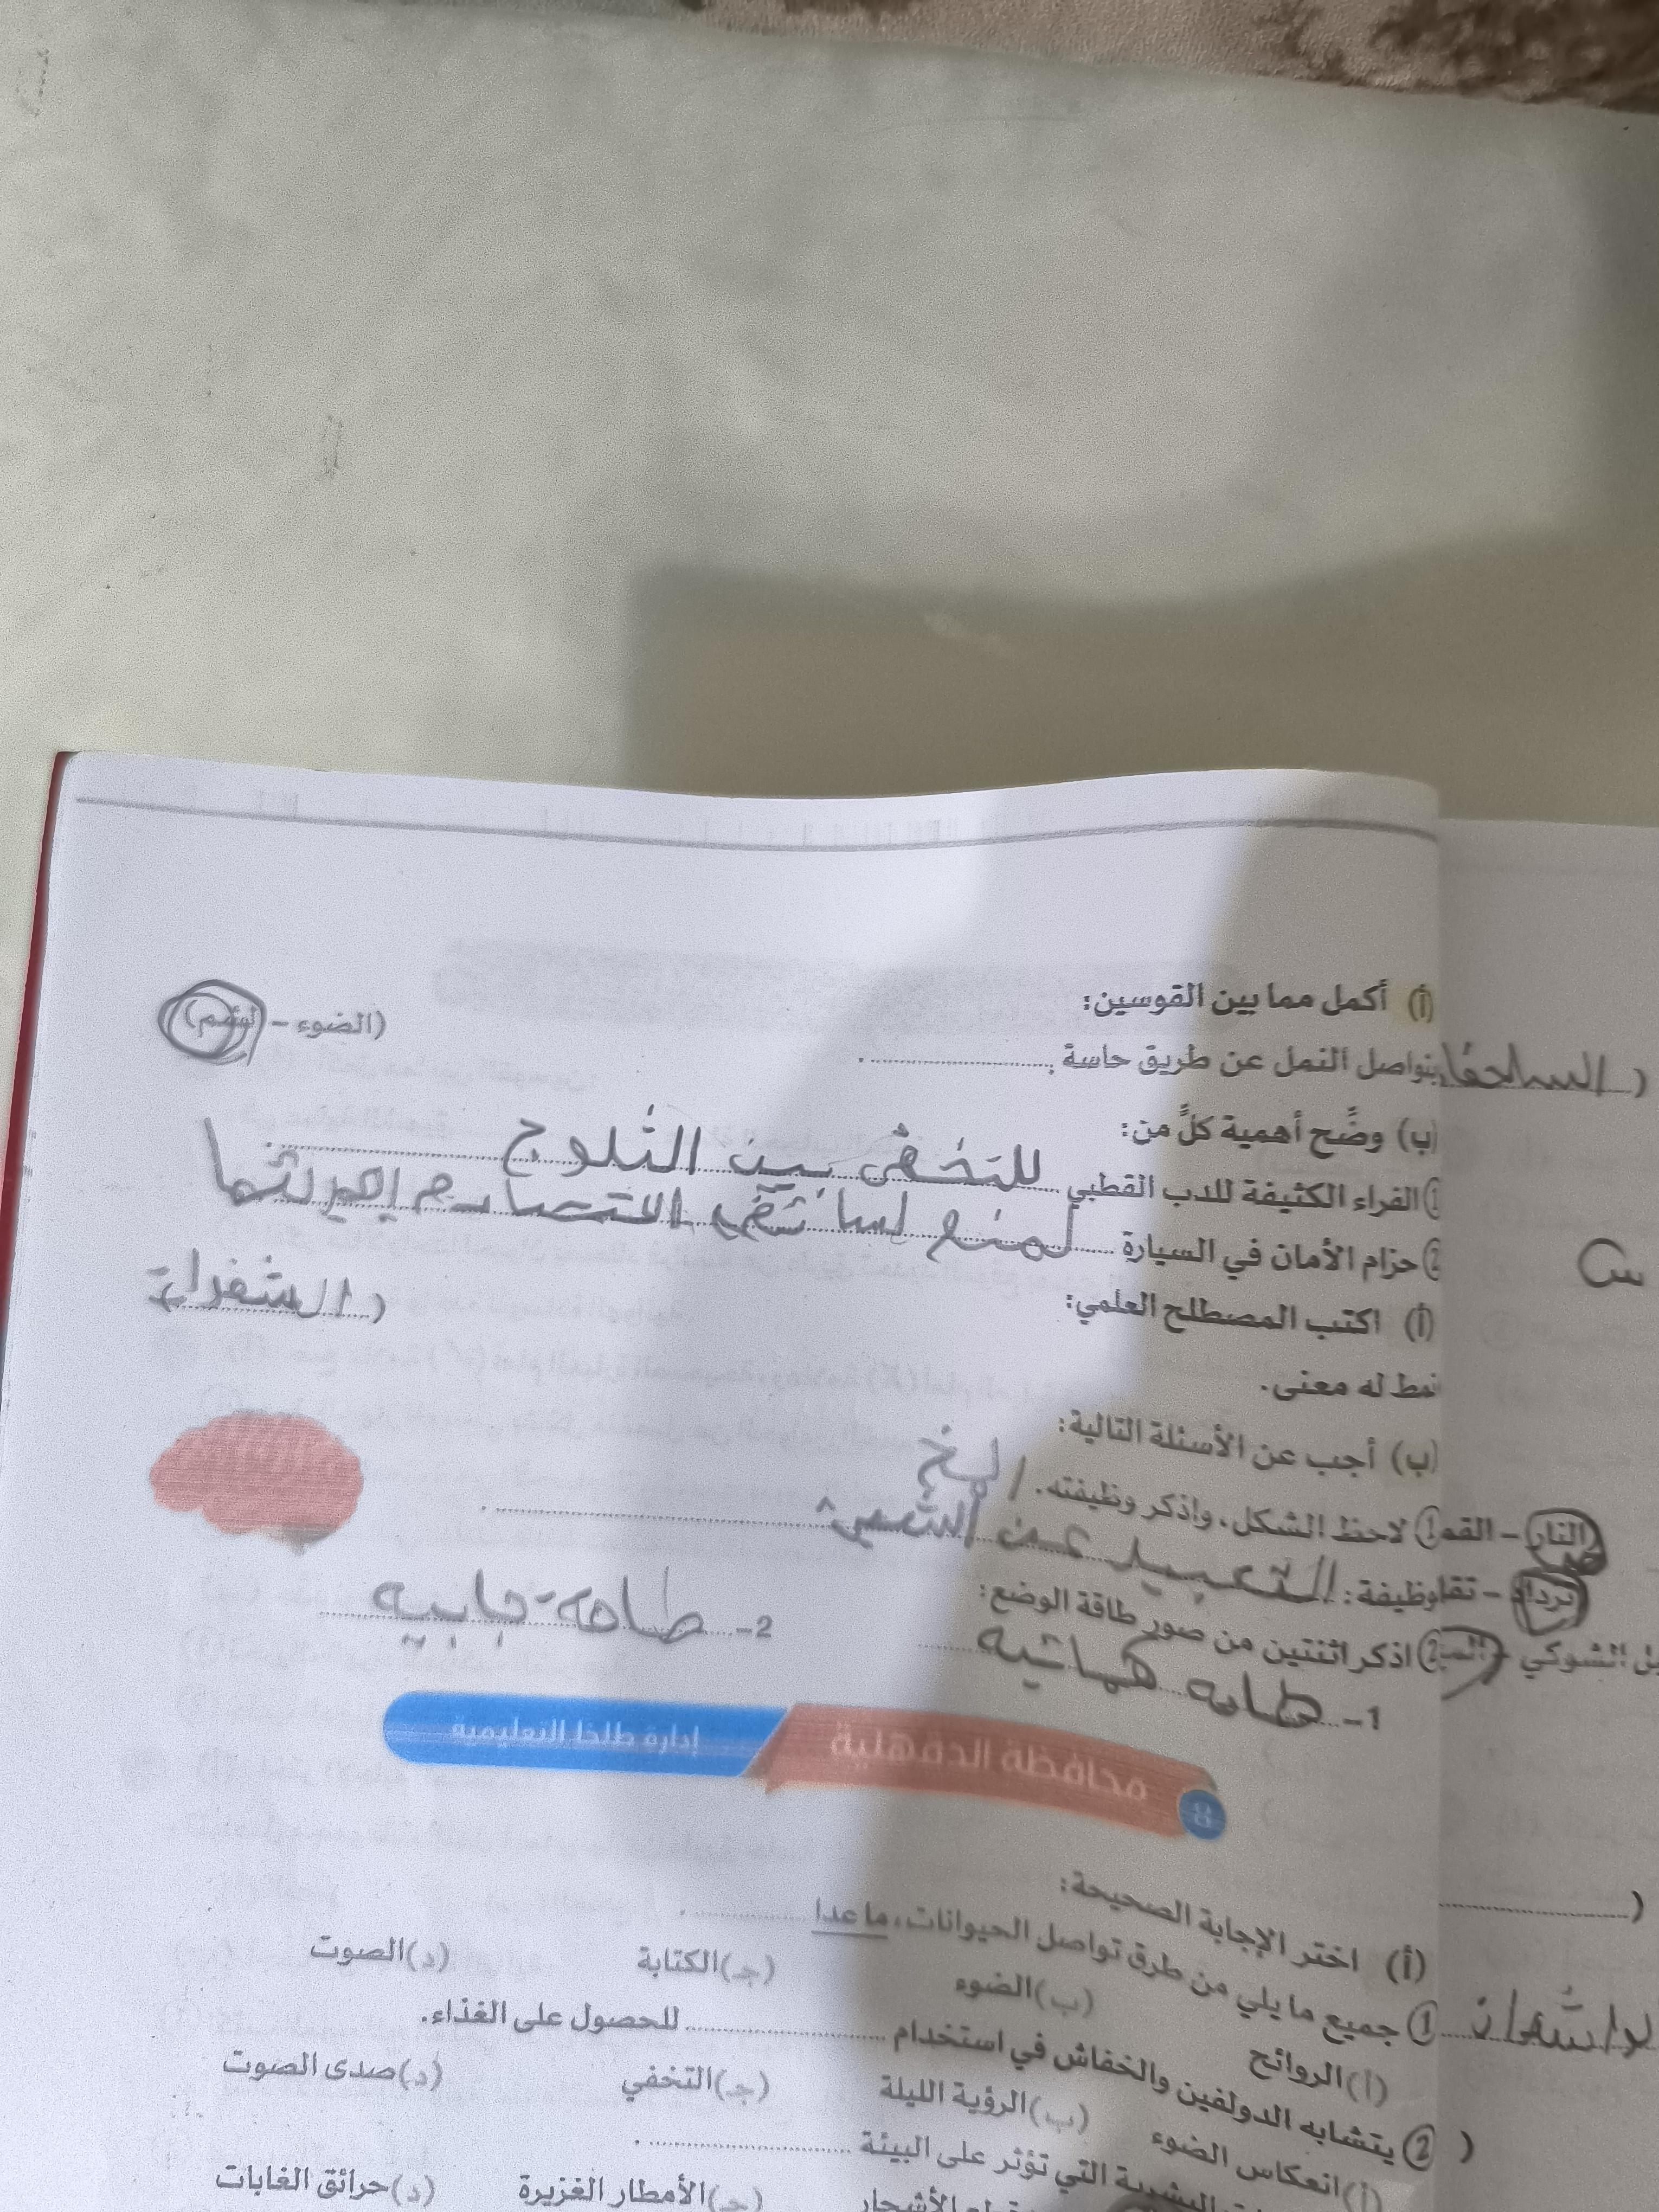 (أ) أكمل مما بين القوسين:
يتواصل النمل عن طريق حاسة ............ . (الضوء – الشم)
(ب) وضِّح أهمية كلٍّ من:
1 الفراء الكثيفة للدب القطبي للتخفى بين الثلوج
2 حزام الأمان في السيارة لمنع
(أ) اكتب المصطلح العلمي:
نمط له معنى. (الشفرات
(ب) أجب عن الأسئلة التالية:
1 لاحظ الشكل، واذكر وظيفته. المخ
وظيفة: التعبير عن
2 اذكر اثنتين من صور طاقة الوضع:
1- طاقه 2- طاقه
8 محافظة الدقهلية إدارة طلخا التعليمية
(أ) اختر الإجابة الصحيحة:
1 جميع ما يلي من طرق تواصل الحيوانات، ما عدا ............ .
(أ) الروائح (ب) الضوء (جـ) الكتابة (د) الصوت
2 يتشابه الدولفين والخفاش في استخدام ............ للحصول على الغذاء.
(أ) انعكاس الضوء (ب) الرؤية الليلة (جـ) التخفي (د) صدى الصوت
البشرية التي تؤثر على البيئة ............ .
قطع الأشجار (جـ) الأمطار الغزيرة (د) حرائق الغابات
النار – القمر
تزداد – تقل
الشوكي –